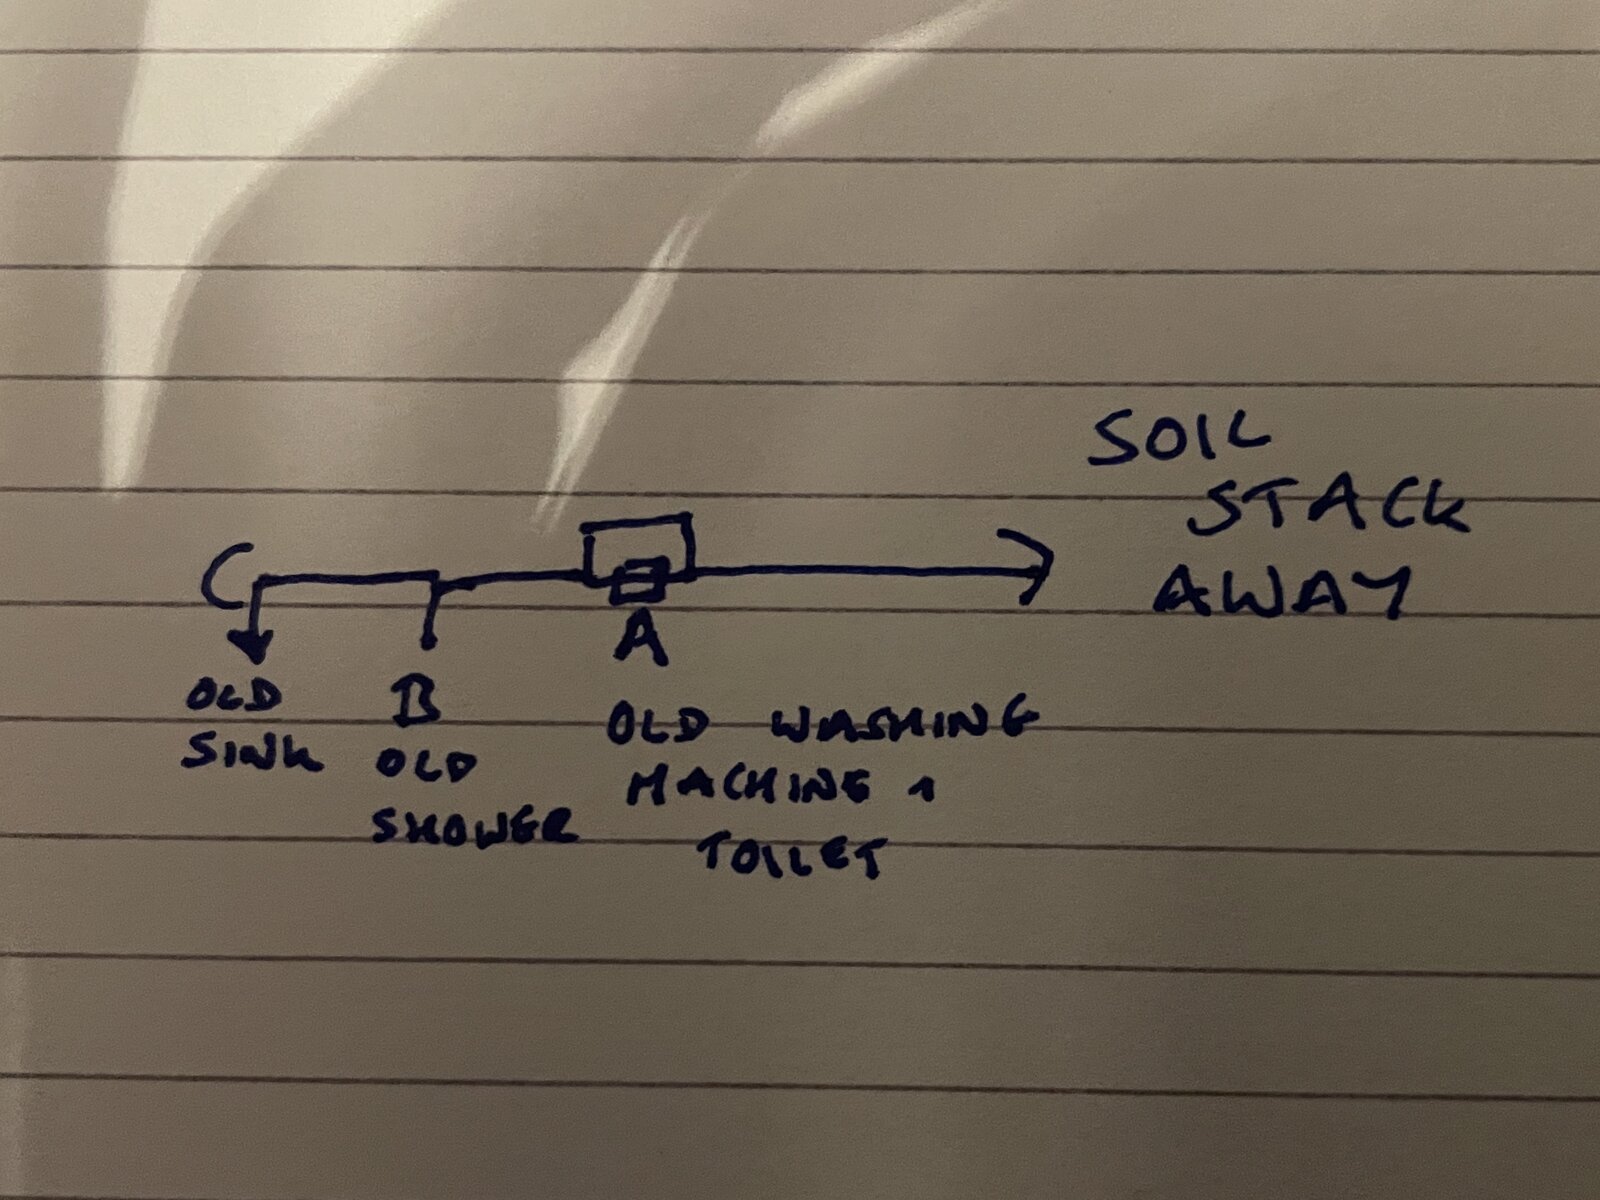 SOIL
STACK
AWAY
C
A
OLD
SINK
B
OLD
SHOWER
OLD WASHING
MACHINE 1
TOILET